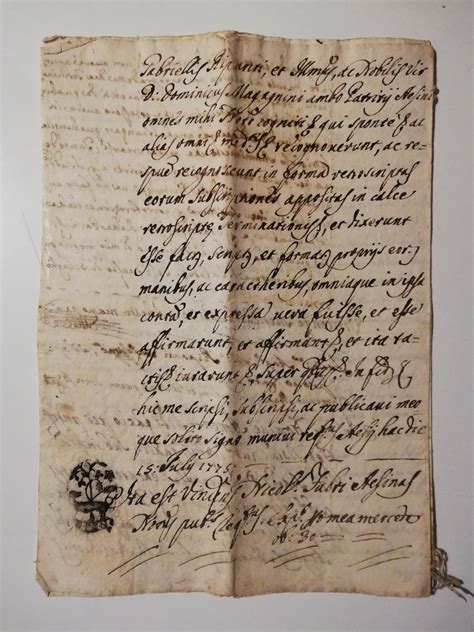 Gabriellis Ripanti, et Illmus, ac Nobilis Vir
D. Dominicus Magagnini ambo Patritij Aesini
omnes mihi Notrio cogniti & qui sponte & ac
alias omni & recognoverunt, ac re-
spve recognoscunt in forma retroscriptas
eorum Subscriptiones appositas in calce
retroscripte terminationis, et dixerunt
esse fact, script, et format proprijs eor
manibus, ac caracteribus, omniaque in ipsa
conta, et expressa vera fuisse, et esse
affirmarunt et affirmant, et ita ta-
ctis iurarunt & Super In fid
hic me scripsi, subscripsi, ac publicavi meo
que solito signo munivi reqs Aesij hac die
15 July 1775
Ita est Nicols Fabri Aesinas
Notrus pubs mea mercede
30